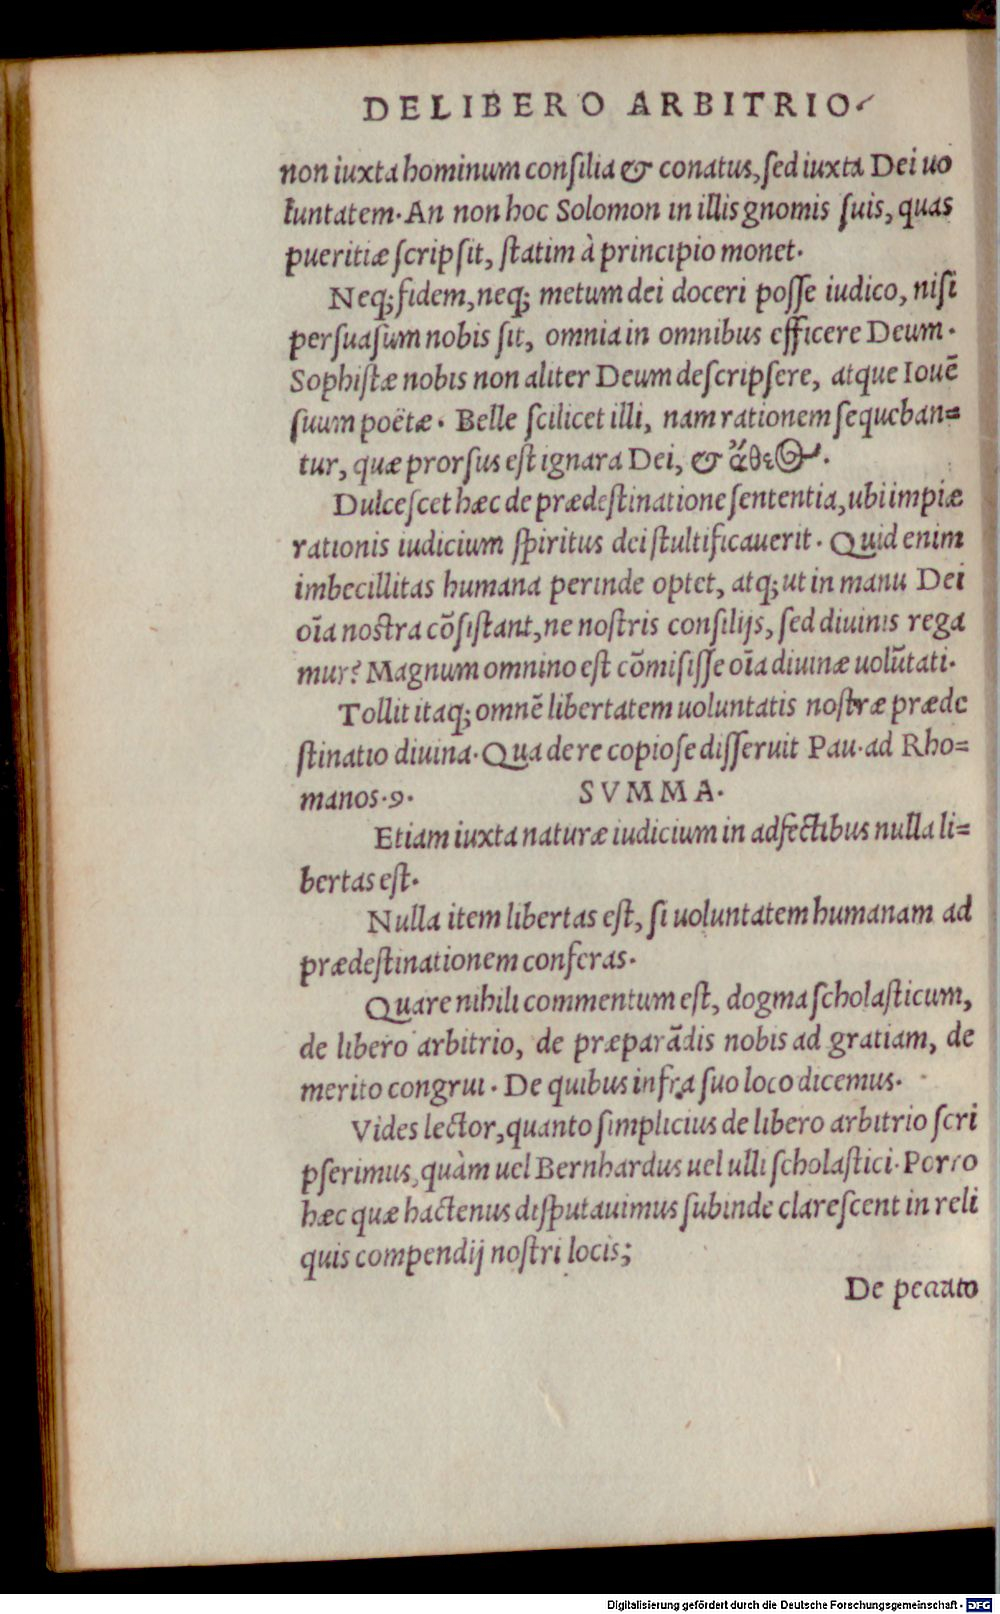 DE LIBERO ARBITRIO.
non iuxta hominum conſilia & conatus, ſed iuxta Dei uo
luntatem. An non hoc Solomon in illis gnomis ſuis, quas
pueritiæ ſcripſit, ſtatim à principio monet.
Neq; fidem, neq; metum dei doceri poſſe iudico, niſi
perſuaſum nobis ſit, omnia in omnibus efficere Deum.
Sophiſtæ nobis non aliter Deum deſcripſere, atque Iouē
ſuum poëtæ. Belle ſcilicet illi, nam rationem ſequeban=
tur, quæ prorſus eſt ignara Dei, & ἄθεος.
Dulceſcet hæc de prædeſtinatione ſententia, ubi impiæ
rationis iudicium ſpiritus dei ſtultificauerit. Quid enim
imbecillitas humana perinde optet, atq; ut in manu Dei
oīa noſtra cōſiſtant, ne noſtris conſilijs, ſed diuinis rega
mur? Magnum omnino eſt cōmiſiſſe oīa diuinæ uolūtati.
Tollit itaq; omnē libertatem uoluntatis noſtræ præde
ſtinatio diuina. Qua de re copioſe diſſeruit Pau. ad Rho=
manos. 9. SVMMA.
Etiam iuxta naturæ iudicium in adfectibus nulla li=
bertas eſt.
Nulla item libertas eſt, ſi uoluntatem humanam ad
prædeſtinationem conferas.
Quare nihili commentum eſt, dogma ſcholaſticum,
de libero arbitrio, de præparādis nobis ad gratiam, de
merito congrui. De quibus infra ſuo loco dicemus.
Vides lector, quanto ſimplicius de libero arbitrio ſcri
pſerimus, quàm uel Bernhardus uel ulli ſcholaſtici. Porro
hæc quæ hactenus diſputauimus ſubinde clareſcent in reli
quis compendij noſtri locis;
De peccato
Digitalisierung gefördert durch die Deutsche Forschungsgemeinschaft - DFG